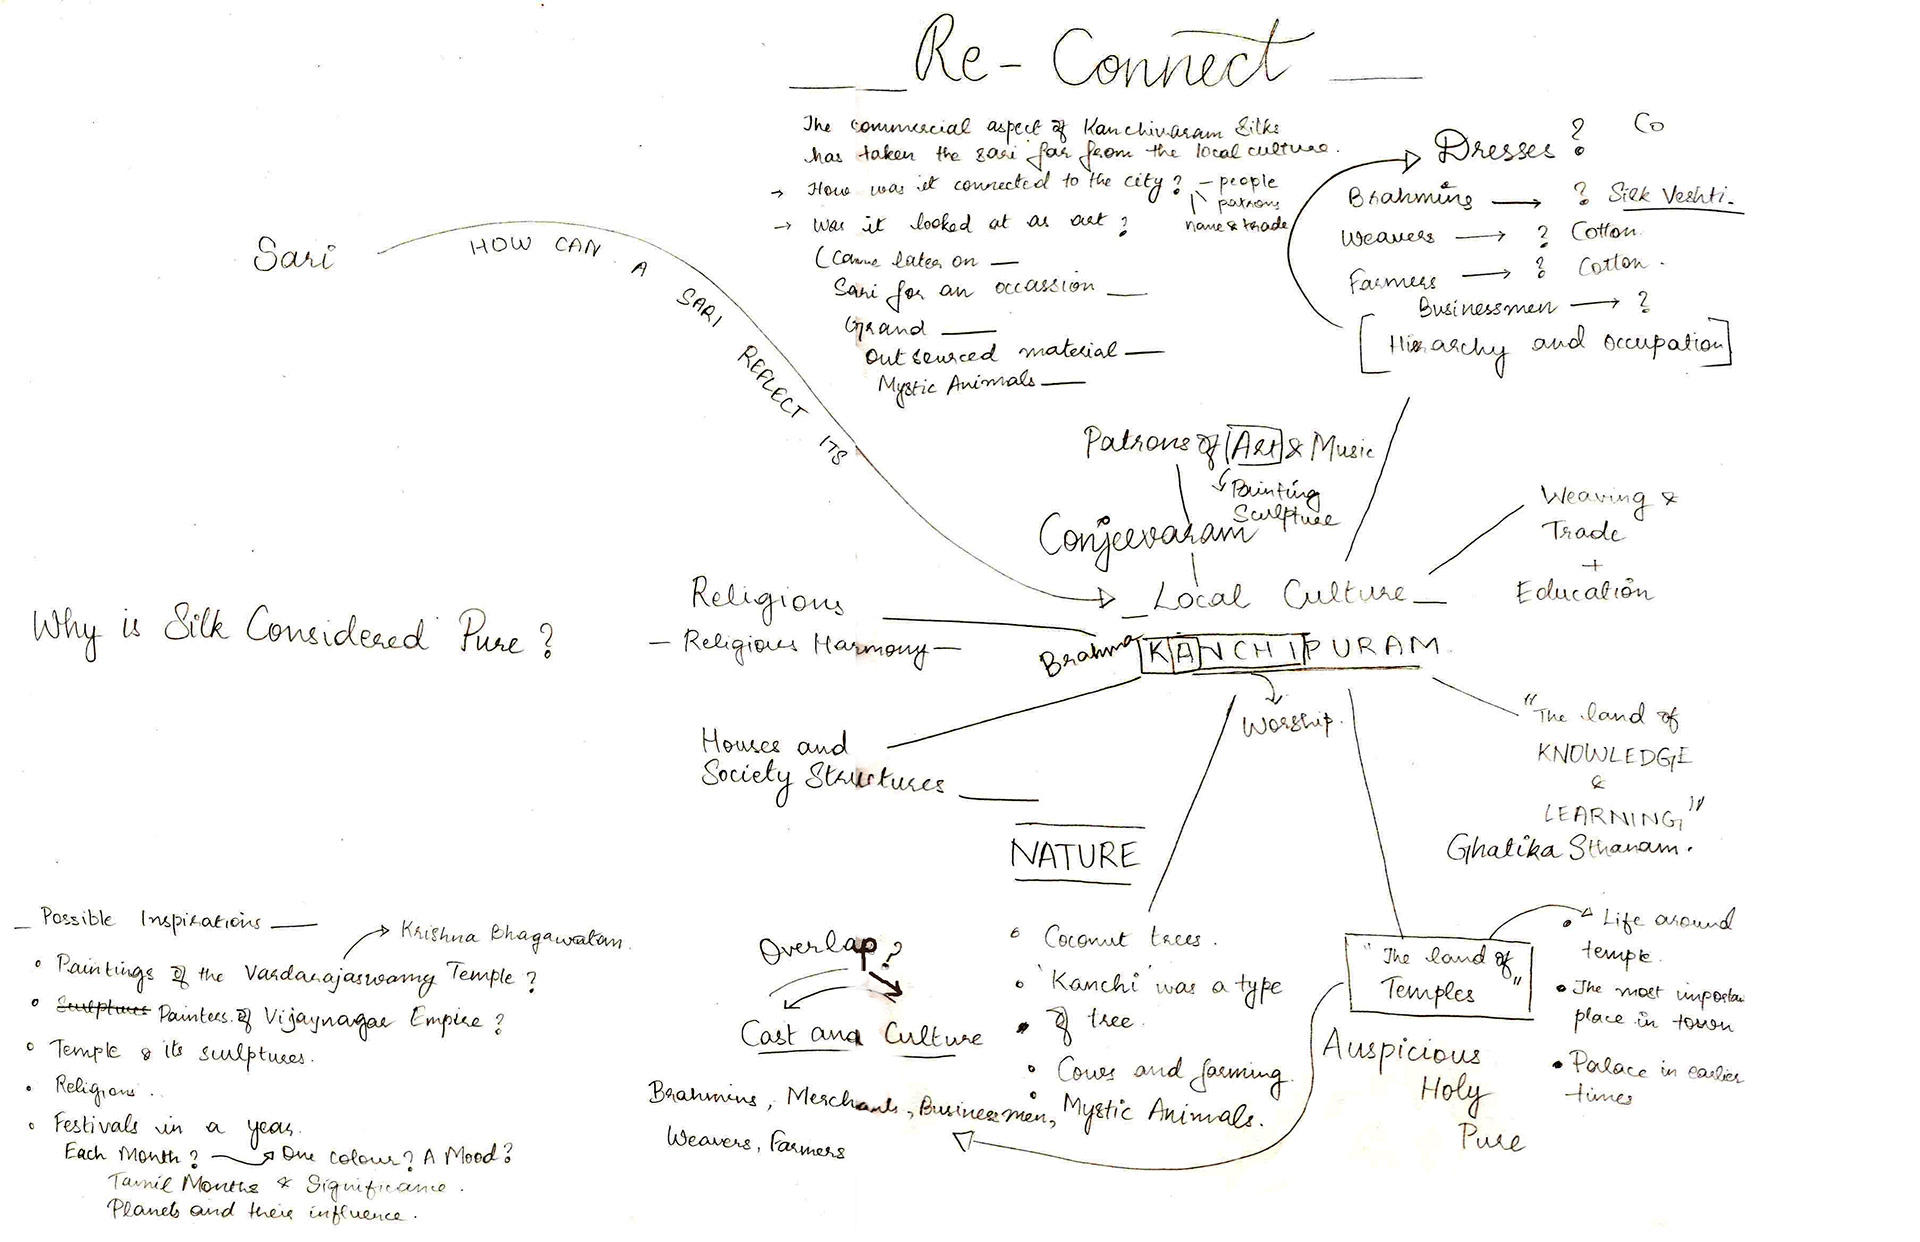 Re-Connect
The commercial aspect of Kanchivaram Silks
has taken the sari far from the local culture.
→ How was it connected to the city? - people
patrons
name & trade
→ Was it looked at as art?
(Came later on —
Sari for an occassion —
Grand —
Outsourced material —
Mystic Animals —
Co
Dresses?
Brahmins → ? Silk Veshti.
Weavers → ? Cotton.
Farmers → ? Cotton.
Businessmen → ?
[Hierarchy and occupation]
Sari
HOW CAN A SARI REFLECT ITS
Patrons of Art & Music
Painting
Sculpture
Conjeevaram
Local Culture
Brahma
KANCHIPURAM
Worship.
Weaving &
Trade
+
Education
Religions
- Religious Harmony -
Why is Silk Considered Pure?
Houses and
Society Structures
"The land of
KNOWLEDGE
&
LEARNING"
Ghatika Sthanam.
NATURE
• Coconut trees.
• 'Kanchi' was a type
• of tree.
• Cows and farming.
• Mystic Animals.
"The land of
Temples"
Auspicious
Holy
Pure
• Life around
temple.
• The most importa
place in town
• Palace in earlier
times
Overlap?
Cast and Culture
Brahmins, Merchants, Businessmen,
Weavers, Farmers
_ Possible Inspirations —
Krishna Bhagawatam.
• Paintings of the Vardarajaswamy Temple?
• Sculptures Painters of Vijaynagar Empire?
• Temple & its sculptures.
• Religions..
• Festivals in a year.
Each Month? → One colour? A Mood?
Tamil Months & Significance.
Planets and their influence.